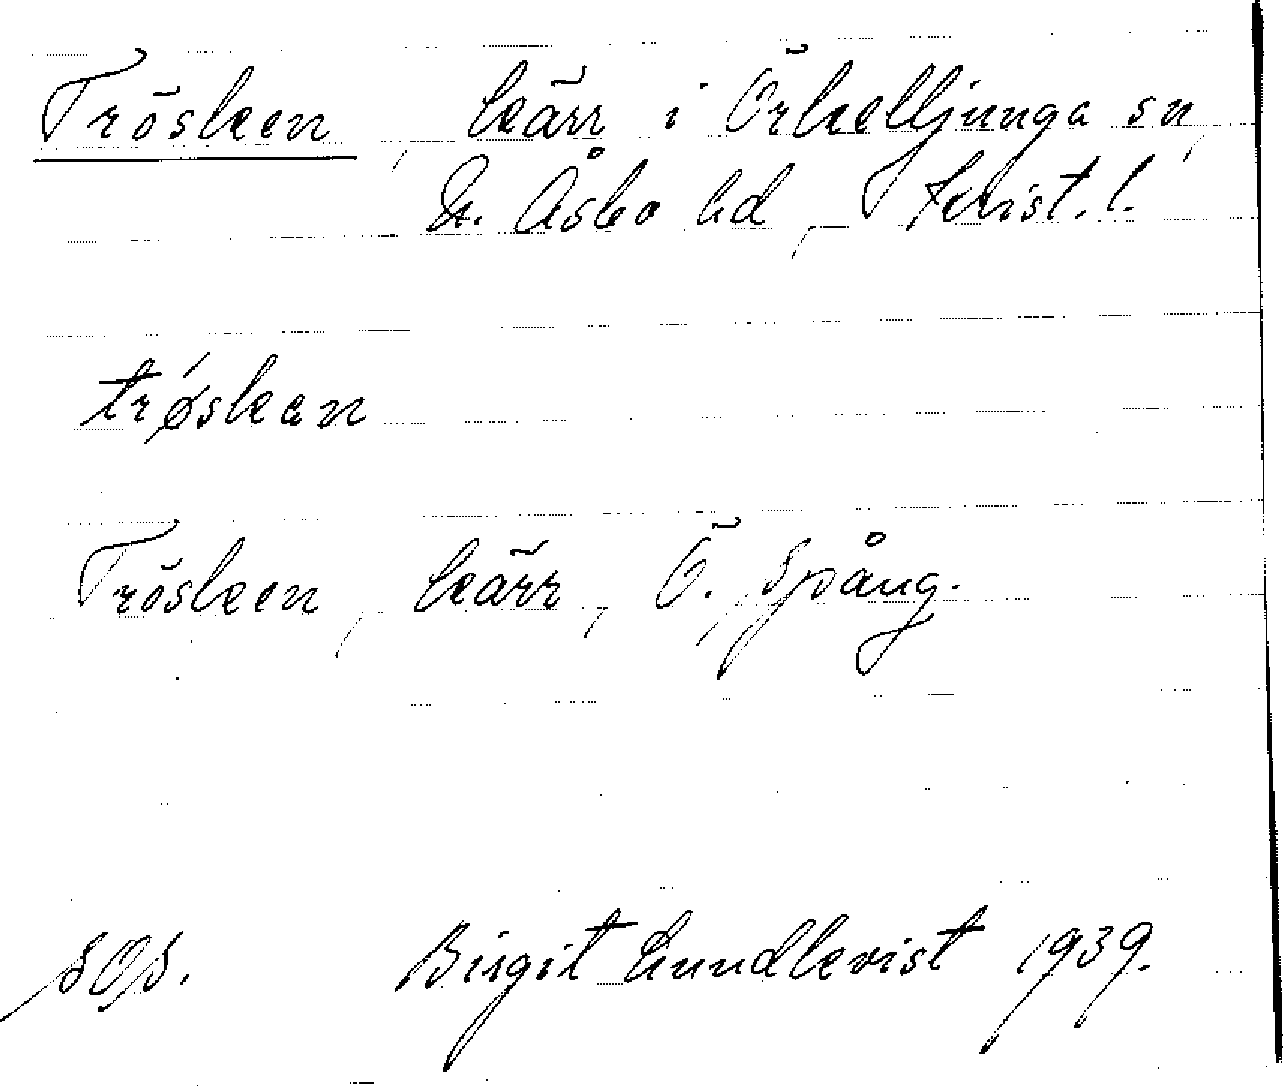 Trösken, kärr i Örkelljunga sn,
N. Åsbo hd, Krist. l.
trǿskan
Trösken, kärr, Ö. Spång.
Birgit Lundkvist 1939.